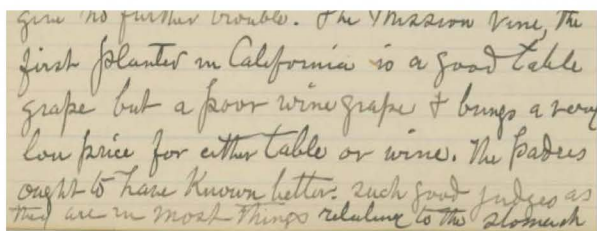 give no further trouble. The Mission Vine, the
first planted in California is a good table
grape but a poor wine grape & brings a very
low price for either table or wine. The padres
ought to have known better. such good judges as
they are in most things relating to the stomach